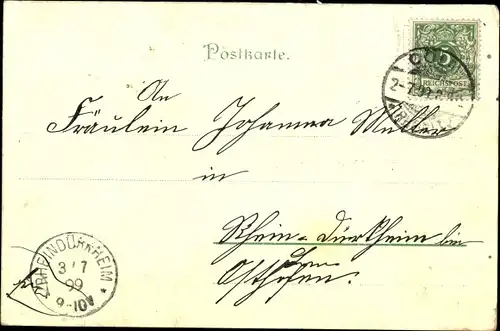 Postkarte.
5
REICHSPOST
CÖLN
2-7.99.
An
Fräulein Johanna Müller
in
Rhein-Dürkheim bei
Osthofen.
RHEINDÜRKHEIM
3/7
99
9-10V